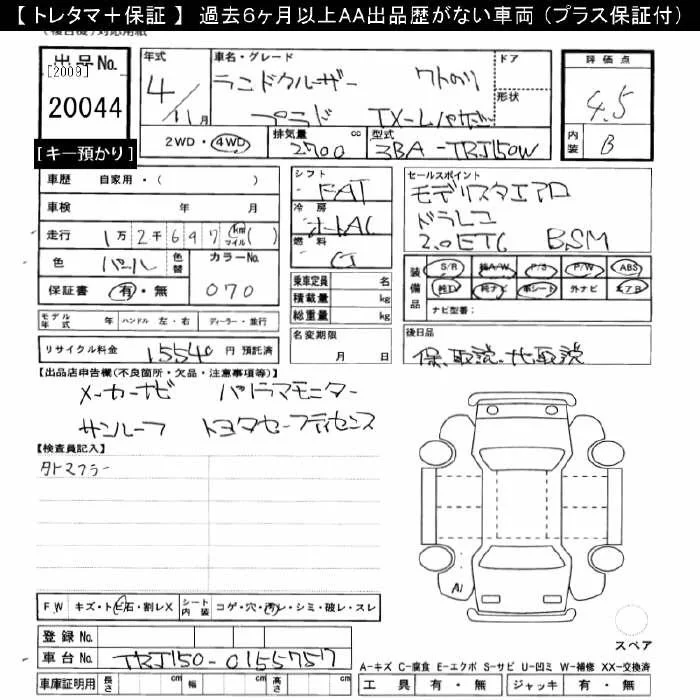 【トレタマ＋保証】 過去6ヶ月以上AA出品歴がない車両（プラス保証付）
出品No.
[2009]
20044
[キー預かり]
年式
4/11月
車名・グレード
ランドクルーザー ワゴン
プラド TX-Lパッケージ
ドア
形状
2WD・4WD
排気量 cc
2700
型式
3BA-TRJ150W
評価点
4.5
内装
B
車歴 自家用・( )
車検 年 月
走行 1万2千697 km マイル( )
色 パール
色替
カラーNo.
070
保証書 有・無
シフト
FAT
冷房
オートAC
燃料
G
乗車定員 名
積載量 kg
総重量 kg
セールスポイント
モデリスタエアロ
ドラレコ
2.0ETC BSM
装備品
S/R 純A/W P/S P/W ABS
純TV 純ナビ 革シート 外ナビ エアB
ナビ型番：
モデル年式 年 ハンドル 左・右 ディーラー・並行
リサイクル料金 15540 円 預託済
名変期限
月 日
後日品
保、取説、地取説
【出品店申告欄(不良箇所・欠品・注意事項等)】
メーカーナビ パノラマモニター
サンルーフ トヨタセーフティセンス
【検査員記入】
タトマフラー
A1
F.W キズ・トビ石・割レX
シート内装 コゲ・穴・汚レ・シミ・破レ・スレ
登録No.
車台No. TRJ150-0155757
車庫証明用 長さ cm 幅 cm 高さ cm
スペア
A-キズ C-腐食 E-エクボ S-サビ U-凹ミ W-補修 XX-交換済
工具 有・無 ジャッキ 有・無